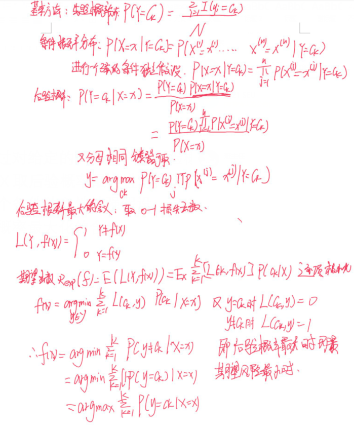 基本方法: 先验概率分布 P(Y=Cₖ) = ΣI(yᵢ=Cₖ) / N
条件概率分布: P(X=x|Y=Cₖ) = P(X⁽¹⁾=x⁽¹⁾, ..... X⁽ⁿ⁾=x⁽ⁿ⁾|Y=Cₖ)
条件独立假设. P(X=x|Y=Cₖ) = ∏ⱼ₌₁ⁿ P(X⁽ʲ⁾=x⁽ʲ⁾|Y=Cₖ)
后验概率: P(Y=Cₖ|X=x) = P(Y=Cₖ) P(X=x|Y=Cₖ) / P(X=x)
= P(Y=Cₖ) ∏ P(X⁽ʲ⁾=x⁽ʲ⁾|Y=Cₖ) / P(X=x)
又分母相同
y = argmax_{Cₖ} P(Y=Cₖ) ∏ⱼ P(X⁽ʲ⁾=x⁽ʲ⁾|Y=Cₖ)
后验概率最大的含义: 取 0-1 损失函数.
L(Y, f(x)) = { 1 Y≠f(x)
0 Y=f(x)
期望 Rexp(f) = E(L(Y, f(x))) = Eₓ Σₖ₌₁ᴷ [L(Cₖ, f(x)] P(Cₖ|X)
f(x) = argmin_{y∈Y} Σₖ₌₁ᴷ L(Cₖ, y) P(Cₖ|X=x) 又 y=Cₖ时 L(Cₖ,y) = 0
y≠Cₖ时 L(Cₖ,y) = 1
∴ f(x) = argmin Σₖ₌₁ᴷ P(y≠Cₖ|X=x) 即后验概率最大时
= argmin Σₖ₌₁ᴷ (1-P(y=Cₖ)|X=x) 期望风险最小时.
= argmax Σₖ₌₁ᴷ P(y=Cₖ|X=x)